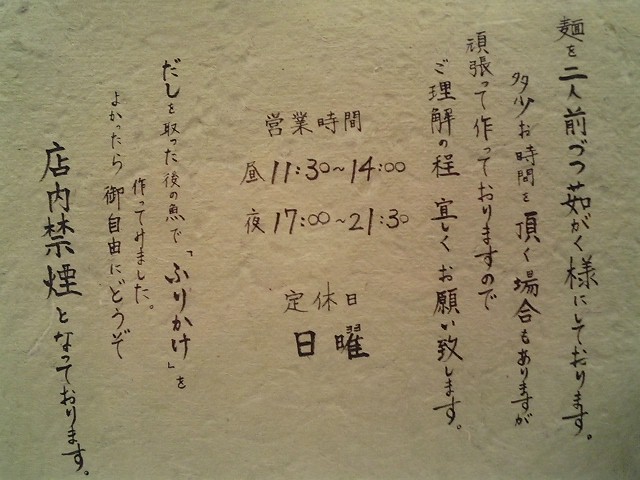 麺を二人前づつ茹がく様にしております。
多少お時間を頂く場合もありますが
頑張って作っておりますので
ご理解の程 宜しくお願い致します。
営業時間
昼 11:30~14:00
夜 17:00~21:30
定休日
日曜
だしを取った後の魚で「ふりかけ」を
作ってみました。
よかったら御自由にどうぞ
店内禁煙となっております。